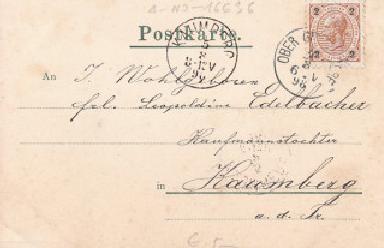 A-NO-16636
Postkarte.
KAUMBERG
OBER
2 2
2 2
An I. Wohlgeboren
frl. Leopoldine Edelbacher
Kaufmannstochter
in Kaumberg
a. d. Tr.